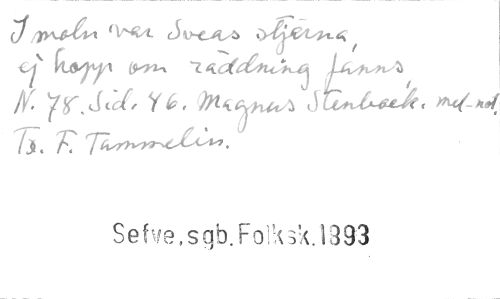 I moln var Sveas stjärna,
ej hopp om räddning fanns,
N. 78. Sid. 46. Magnus Stenbock. mel-not.
To. F. Tammelin.
Sefve, sgb. Folksk. 1893